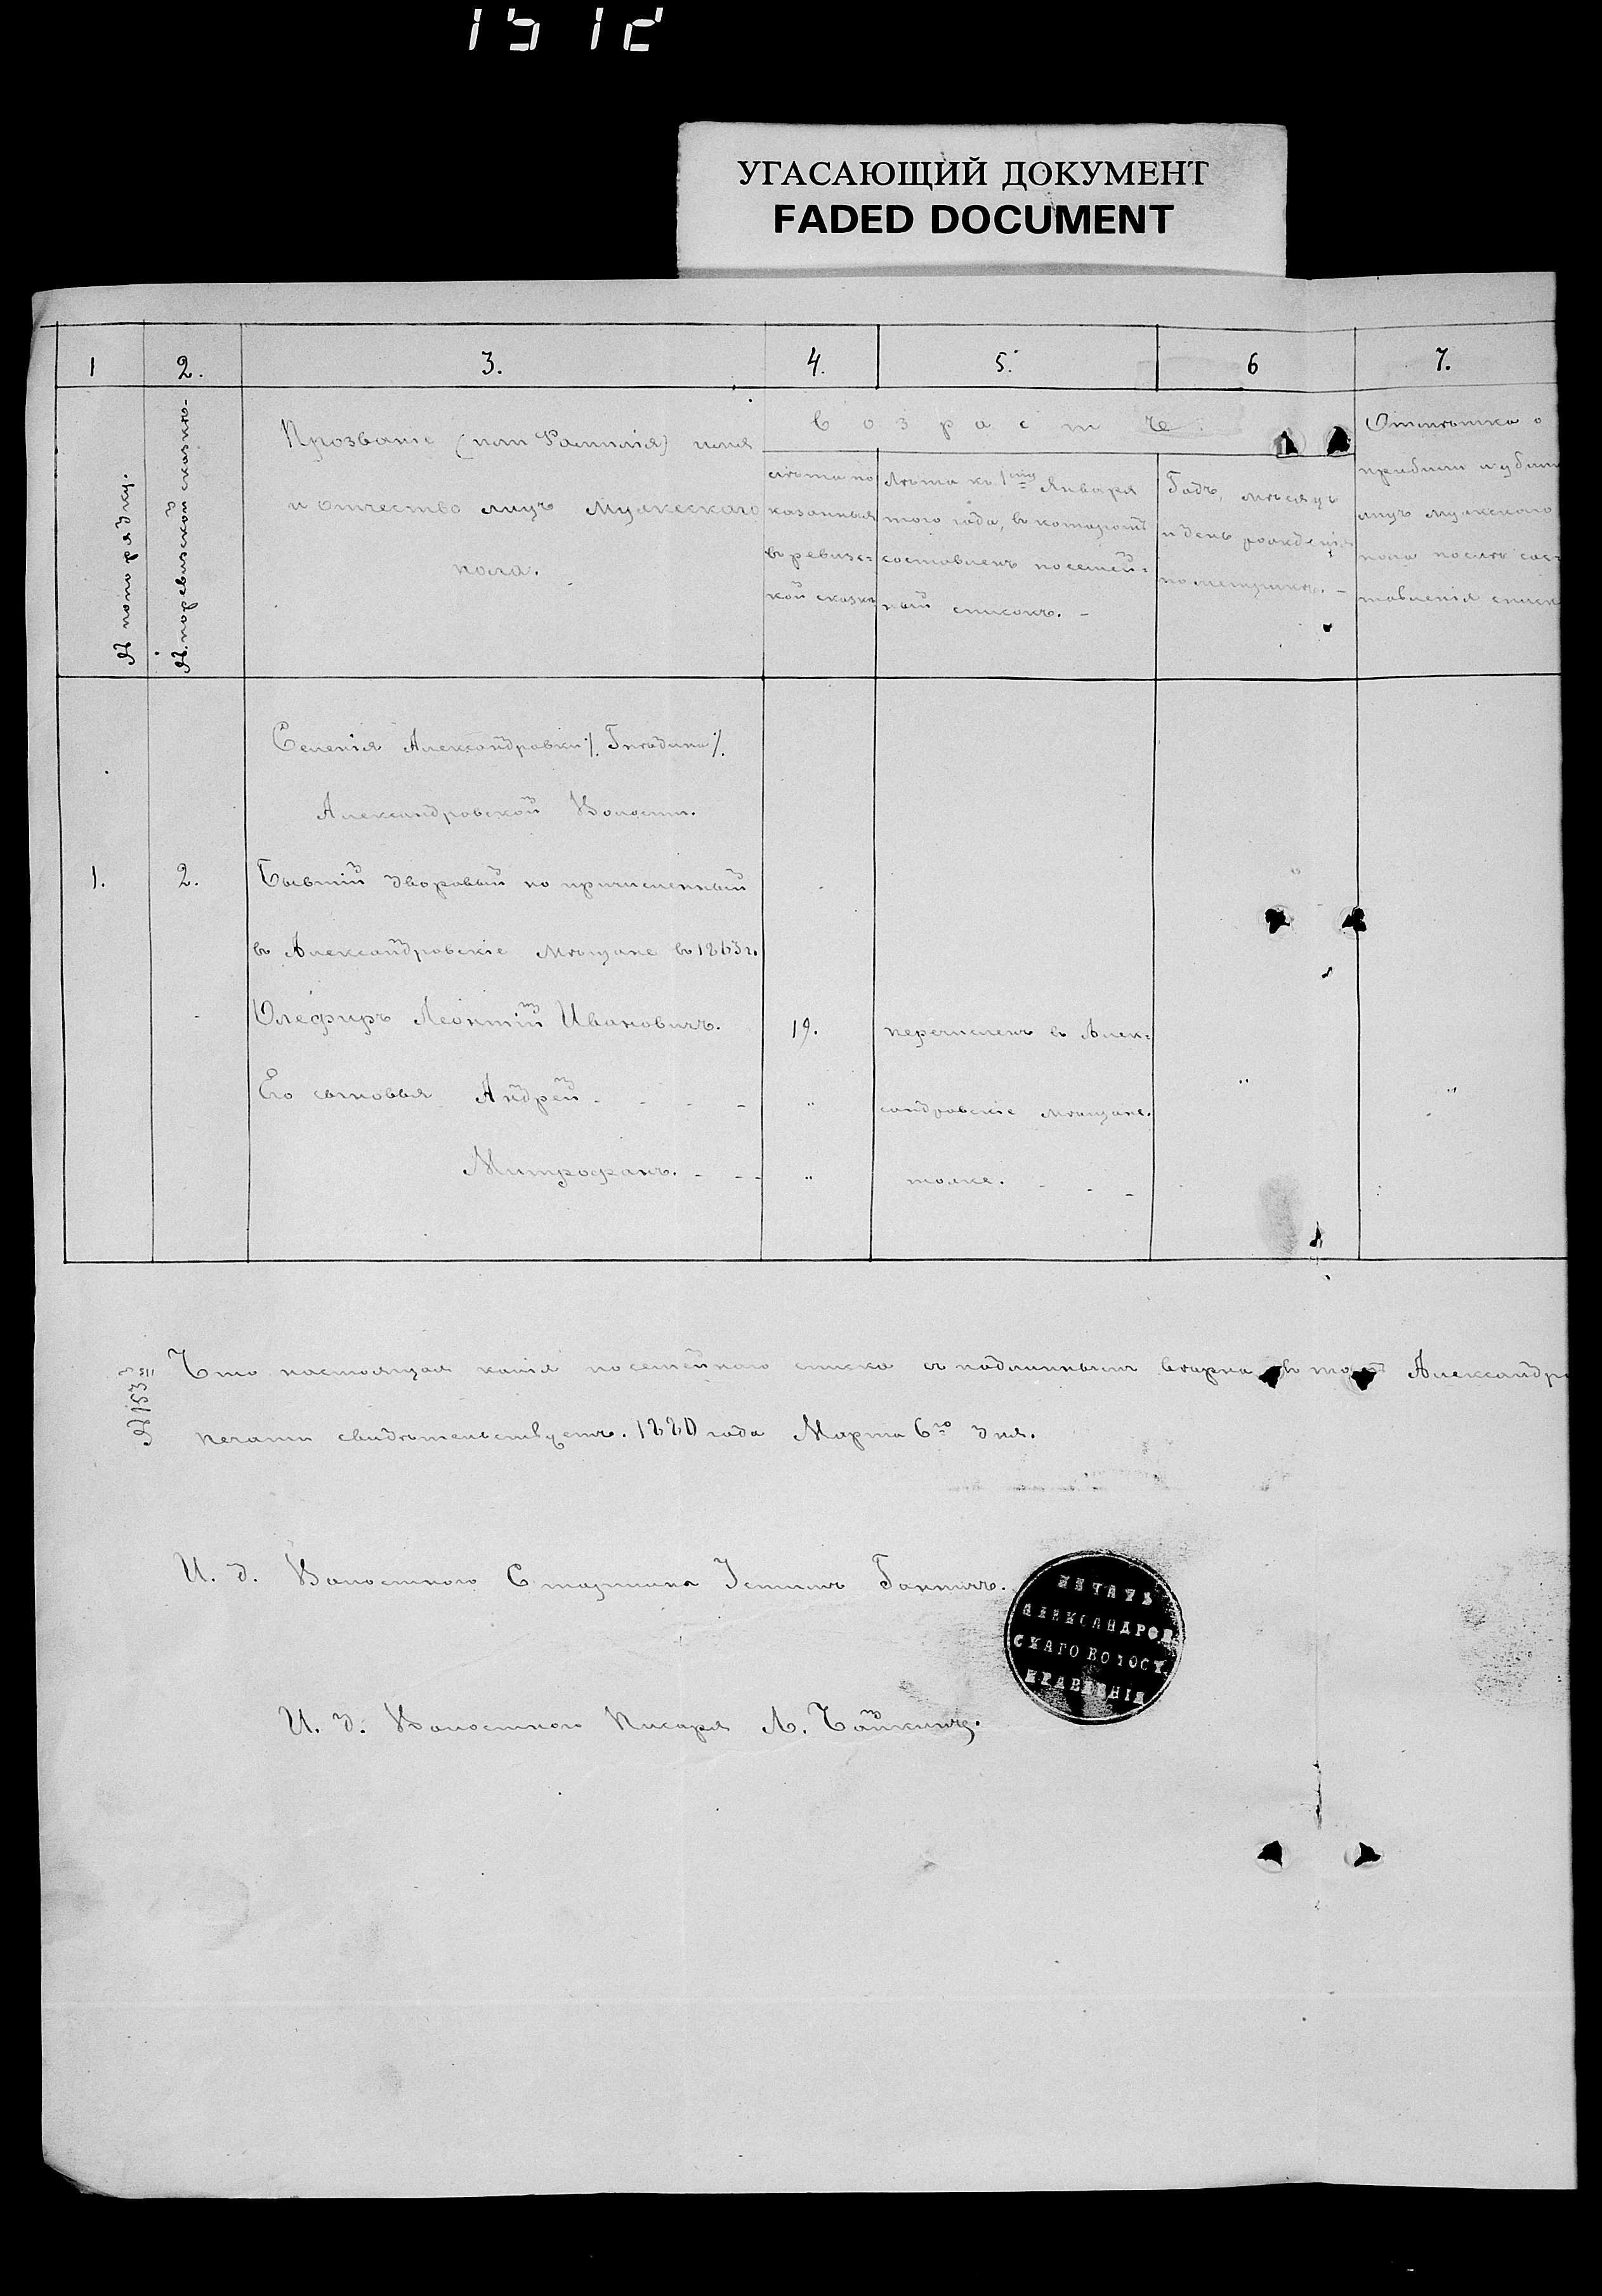 1512
УГАСАЮЩИЙ ДОКУМЕНТ
FADED DOCUMENT
1 2. 3. 4. 5. 6 7.
№ по порядку.
№ по ревизской сказкѣ
Прозваніе (или Фамилія) имя
и отчество лицъ мужескаго
пола.
Возрастъ:
лѣта по
казанныя
въ ревизс-
кой сказкѣ
Лѣта къ 1му Января
того года, въ которомъ
составленъ посемей-
ный списокъ. -
Годъ, мѣсяцъ
и день рожденія
по метрикѣ. -
Отмѣтка о
прибыли и убыли
лицъ мужскаго
пола послѣ сос-
тавленія списк
Селенія Александровки /. Гнѣдина /.
Александровской Волости.
1. 2. Бывшій дворовый но причисленный
въ Александровскіе Мѣщане въ 1863 г.
Олефиръ Леонтій Ивановичъ. 19. перечисленъ въ Алек-
Его сыновья Андрей - - - - " сандровскіе мѣщане. " "
Митрофанъ. - - - " тоже. - - -
Что настоящая копія посемейнаго списка съ подлиннымъ вѣрна въ томъ Александро
печати свидѣтельствуетъ. 1880 года Марта 6го дня.
И. д. Волостного Старшина Устимъ
И. д. Волостного Писаря Л.
ПЕЧАТЬ
АЛЕКСАНДРОВ
СКАГО ВОЛОСТ.
ПРАВЛЕНІЯ